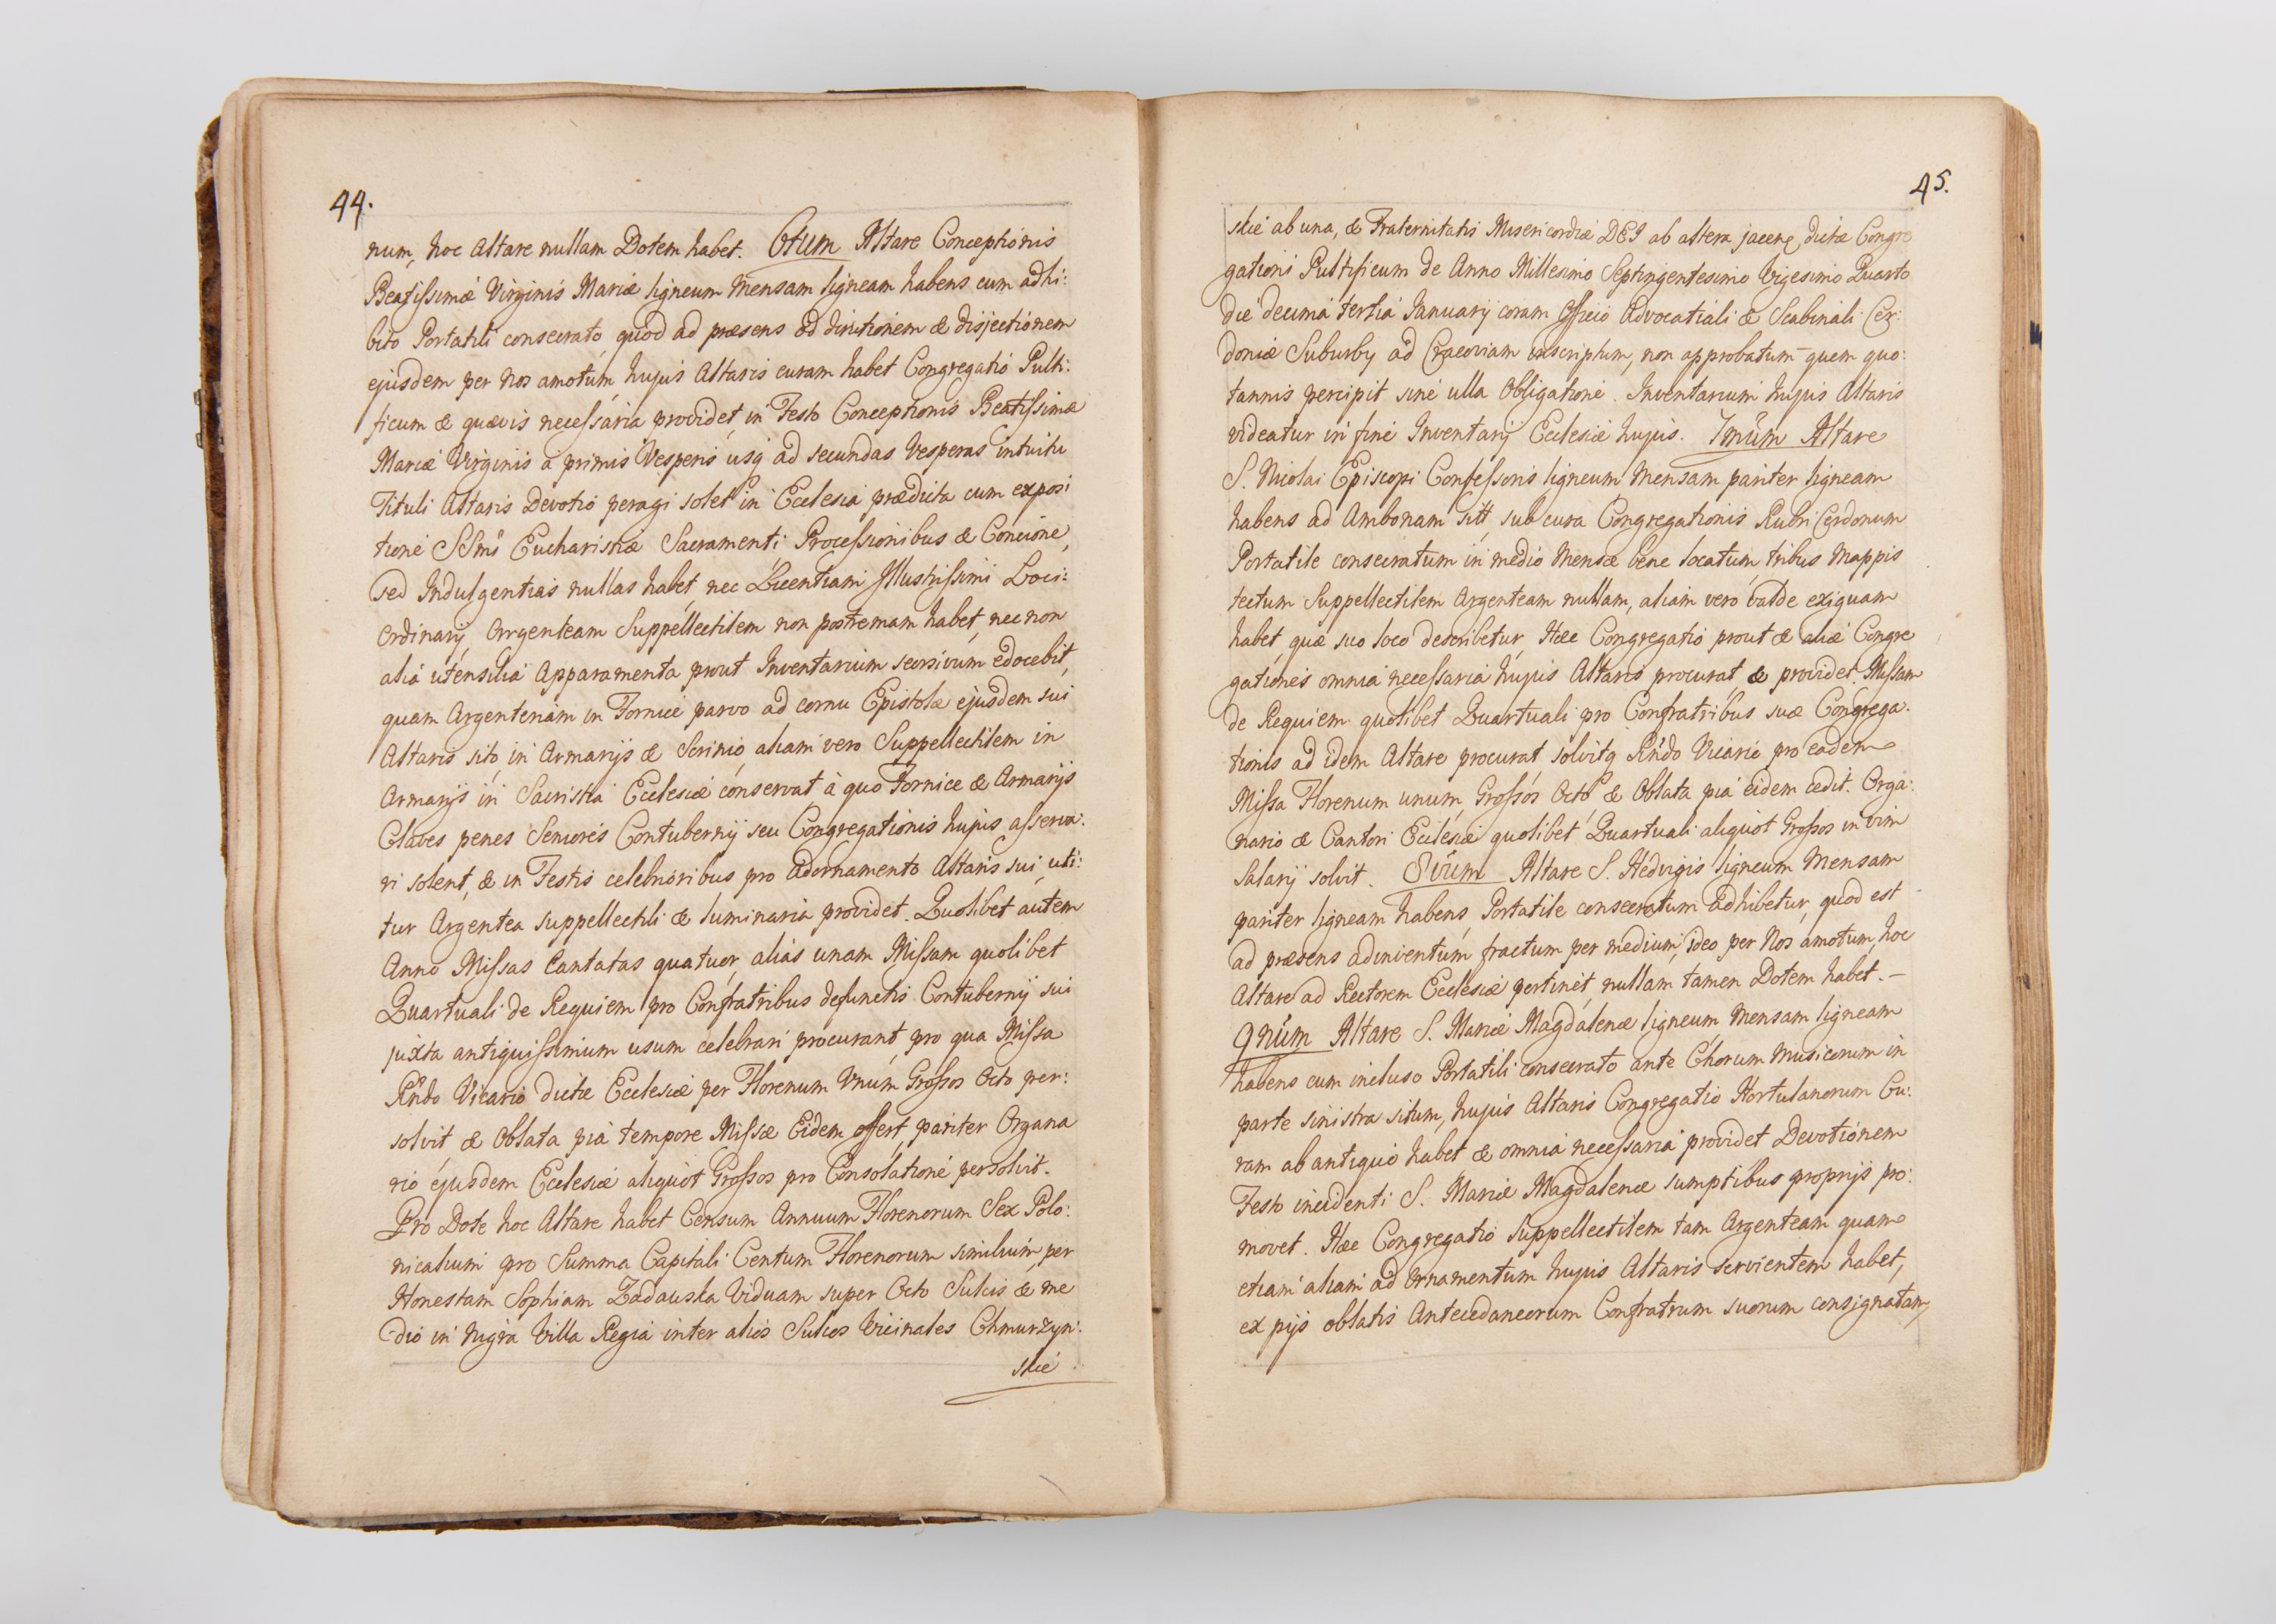 44.
num, hoc Altare nullam Dotem habet. 6tum Altare Conceptionis
Beatissimæ Virginis Mariæ ligneum Mensam ligneam habens cum adhi:
bito Portatili consecrato, quod ad præsens ad diruitionem & disjectionem
ejusdem per Nos amotum, hujus Altaris curam habet Congregatio Pulti:
ficum & quævis necessaria providet, in Festo Conceptionis Beatissimæ
Mariæ Virginis a primis Vesperis usq ad secundas Vesperas intuitu
Tituli Altaris Devotio peragi solet in Ecclesia prædicta cum exposi
tione SSmi Eucharistiæ Sacramenti Processionibus & Concione,
sed Indulgentias nullas habet, nec Licentiam Illustrissimi Loci:
Ordinarij, Argenteam Suppellectilem non postremam habet, nec non
alia utensilia Apparamenta prout Inventarium seorsivum edocebit,
quam Argenteriam in Fornice parvo ad cornu Epistolæ ejusdem sui
Altaris sito, in Armarijs & Scrinio, aliam vero Suppellectilem in
Armarijs in Sacristia Ecclesiæ conservat à quo Fornice & Armarijs
Claves penes Seniores Contubernij seu Congregationis hujus asserva:
ri solent, & in Festis celebrioribus pro Adornamento Altaris sui, uti:
tur Argentea suppellectili & luminaria providet. Quolibet autem
Anno Missas Cantatas quatuor, alias unam Missam quolibet
Quartuali de Requiem pro Confratribus defunctis Contubernij sui
juxta antiquissimum usum celebrari procurant, pro qua Missa
Rndo Vicario dictæ Ecclesiæ per Florenum Unum Grossos Octo per:
solvit, & Oblata pia tempore Missæ Eidem offert, pariter Organa
rio ejusdem Ecclesiæ aliquot Grossos pro Consolatione persolvit.
Pro Dote hoc Altare habet Censum Annuum Florenorum Sex Polo:
nicalium pro Summa Capitali Centum Florenorum similium, per
Honestam Sophiam Zadauska Viduam super Octo Sulcis & me
dio in Nigra Villa Regia inter alios Sulcos Vicinales Chmurzyn:
skie
45.
skie ab una, & Fraternitatis Misericordiæ DEI ab altera jacen, dictæ Congre
gationi Pultificum de Anno Millesimo Septingentesimo Vigesimo Quarto
die decima tertia Januarij coram Officio Advocatiali & Scabinali Cer:
doniæ Suburby ad Cracoviam inscriptum, non approbatum - quem quo:
tannis percipit sine ulla Obligatione. Inventarium hujus Altaris
videatur in fine Inventarij Ecclesiæ hujus. 7mum Altare
S. Nicolai Episcopi Confessoris ligneum Mensam pariter ligneam
habens ad Ambonam sitt, sub cura Congregationis Rubri Cerdonum
Portatile consecratum in medio Mensæ bene locatum, tribus Mappis
tectum Suppellectilem Argenteam nullam, aliam vero valde exiguam
habet, quæ suo loco describetur, Hæc Congregatio prout & aliæ Congre
gationes omnia necessaria hujus Altaris procurat & providet. Missam
de Requiem quolibet Quartuali pro Confratribus suæ Congrega:
tionis ad idem Altare procurat, solvitq Rndo Vicario pro eadem
Missa Florenum unum, Grossos Octo & Oblata pia eidem cedit. Orga:
nario & Cantori Ecclesiæ quolibet Quartuali aliquot Grossos in vim
Salarij solvit. 8vum Altare S. Hedvigis ligneum Mensam
pariter ligneam habens, Portatile consecratum adhibetur, quod est
ad præsens adinventum fractum per medium, ideo per Nos amotum, hoc
Altare ad Rectorem Ecclesiæ pertinet, nullam tamen Dotem habet. -
9num Altare S. Mariæ Magdalenæ ligneum Mensam ligneam
habens cum incluso Portatili consecrato ante Chorum Musicorum in
parte sinistra situm, hujus Altaris Congregatio Hortulanorum Cu:
ram ab antiquo habet & omnia necessaria providet Devotionem
Festo incidenti S. Mariæ Magdalenæ sumptibus proprijs pro:
movet. Hæc Congregatio Suppellectilem tam Argenteam quam
etiam aliam ad Ornamentum hujus Altaris servientem habet,
ex pijs oblatis Antecedaneorum Confratrum suorum consignatam,